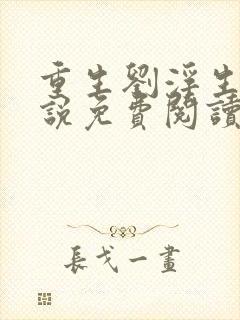 重生劉淫生
說免費閱讀
長戈一畫